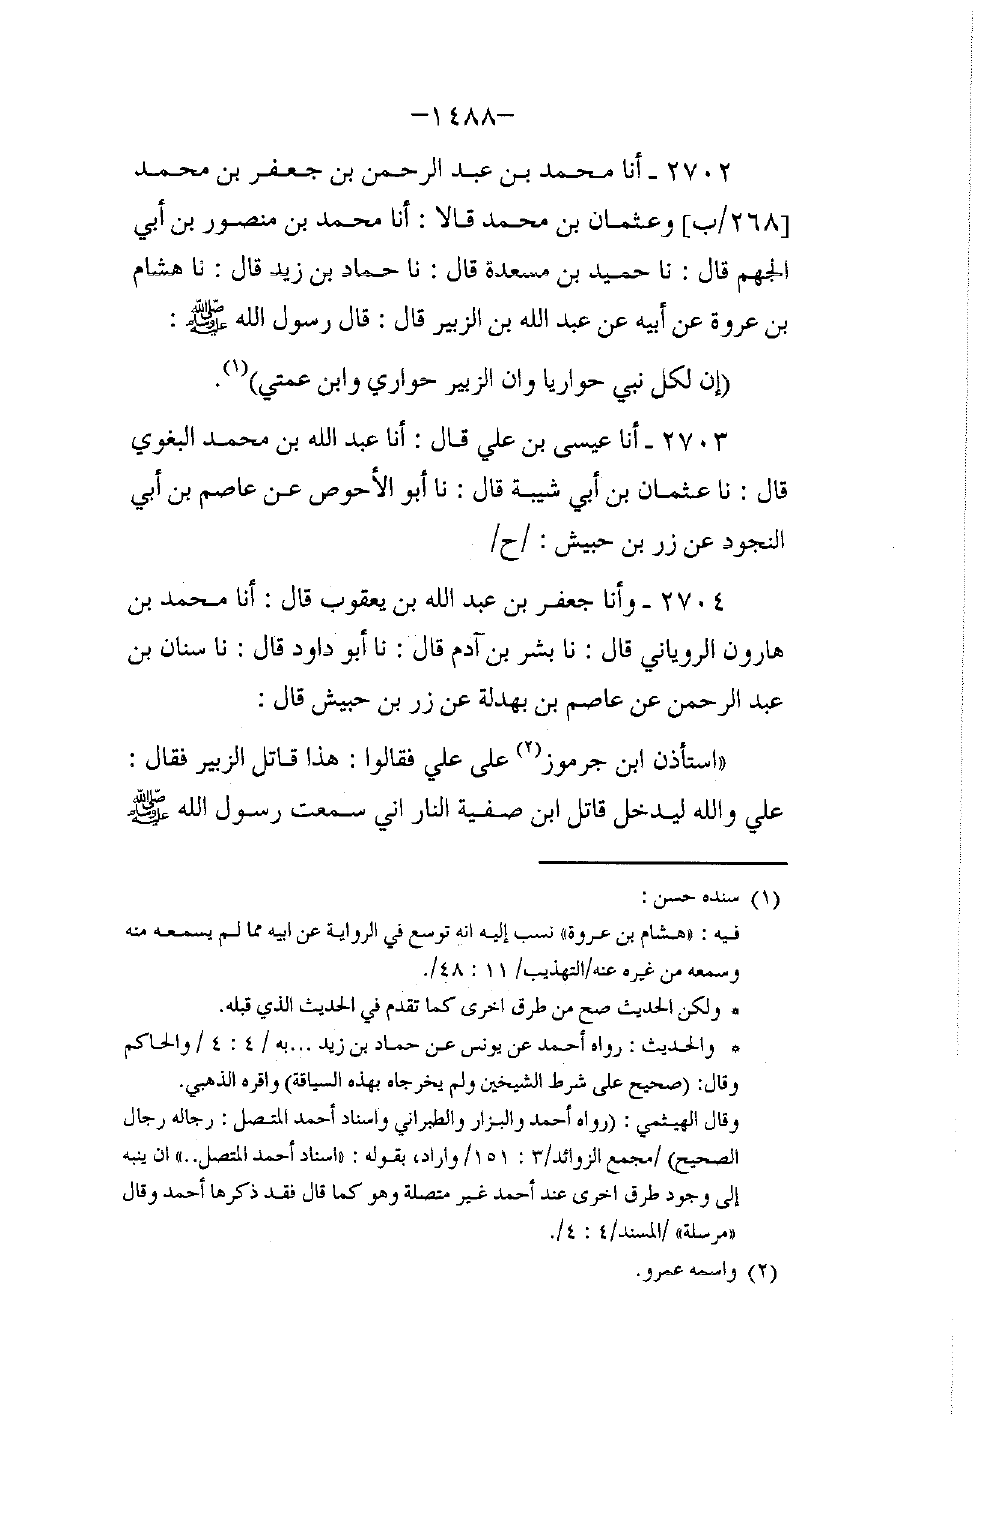 -١٤٨٨-
٢٧٠٢ ـ أنا محمد بن عبد الرحمن بن جعفر بن محمد
[٢٦٨/ب] وعثمان بن محمد قالا : أنا محمد بن منصور بن أبي
الجهم قال : نا حميد بن مسعدة قال : نا حماد بن زيد قال : نا هشام
بن عروة عن أبيه عن عبد الله بن الزبير قال : قال رسول الله ﷺ :
(إن لكل نبي حواريا وان الزبير حواري وابن عمتي)(١).
٢٧٠٣ ـ أنا عيسى بن علي قال : أنا عبد الله بن محمد البغوي
قال : نا عثمان بن أبي شيبة قال : نا أبو الأحوص عن عاصم بن أبي
النجود عن زر بن حبيش : /ح/
٢٧٠٤ ـ وأنا جعفر بن عبد الله بن يعقوب قال : أنا محمد بن
هارون الروياني قال : نا بشر بن آدم قال : نا أبو داود قال : نا سنان بن
عبد الرحمن عن عاصم بن بهدلة عن زر بن حبيش قال :
«استأذن ابن جرموز(٢) على علي فقالوا : هذا قاتل الزبير فقال :
علي والله ليدخل قاتل ابن صفية النار اني سمعت رسول الله ﷺ
(١) سنده حسن :
فيه : «هشام بن عروة» نسب إليه انه توسع في الرواية عن ابيه مما لم يسمعه منه
وسمعه من غيره عنه/التهذيب/ ١١ : ٤٨/.
* ولكن الحديث صح من طرق اخرى كما تقدم في الحديث الذي قبله.
* والحديث : رواه أحمد عن يونس عن حماد بن زيد ...به / ٤ : ٤ / والحاكم
وقال: (صحيح على شرط الشيخين ولم يخرجاه بهذه السياقة) واقره الذهبي.
وقال الهيثمي : (رواه أحمد والبزار والطبراني واسناد أحمد المتصل : رجاله رجال
الصحيح) /مجمع الزوائد/٣ : ١٥١/ واراد، بقوله : «اسناد أحمد المتصل..» ان ينبه
إلى وجود طرق اخرى عند أحمد غير متصلة وهو كما قال فقد ذكرها أحمد وقال
«مرسلة» /المسند/٤ : ٤/.
(٢) واسمه عمرو.